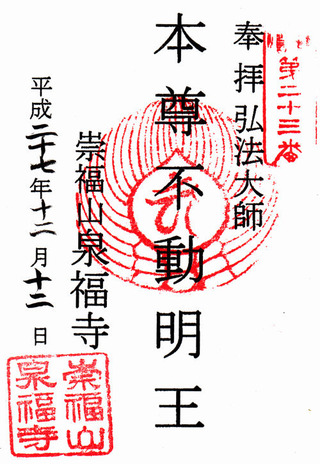 第二十三番
奉拝弘法大師
本尊不動明王
崇福山泉福寺
平成二十七年十二月十二日
崇福山
泉福寺